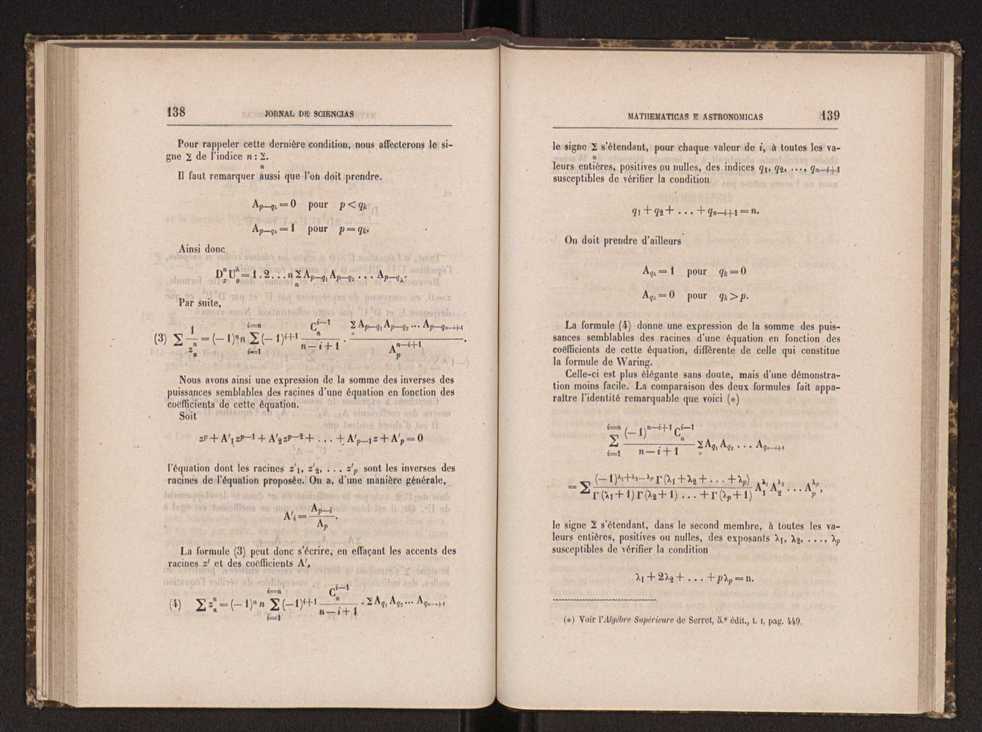 138 JORNAL DE SCIENCIAS
Pour rappeler cette dernière condition, nous affecterons le si-
gne Σ de l'indice n : Σ.
n
Il faut remarquer aussi que l'on doit prendre.
A_{p—q_k} = 0 pour p < q_k
A_{p—q_k} = 1 pour p = q_k.
Ainsi donc
D^n U^k_o = 1 . 2 . . . n Σ_n A_{p—q_1} A_{p—q_2} . . . A_{p—q_k}.
Par suite,
(3) Σ 1/z^n_n = (— 1)^n n Σ_{i=1}^{i=n} (— 1)^{i+1} C^{i—1}_n / (n — i + 1) . Σ A_{p—q_1} A_{p—q_2} ... A_{p—q_{n—i+1}} / A_p^{n—i+1} .
Nous avons ainsi une expression de la somme des inverses des
puissances semblables des racines d'une équation en fonction des
coëfficients de cette équation.
Soit
z^p + A'_1 z^{p—1} + A'_2 z^{p—2} + . . . + A'_{p—1} z + A'_p = 0
l'équation dont les racines z'_1, z'_2, . . . z'_p sont les inverses des
racines de l'équation proposée. On a, d'une manière générale,
A'_i = A_{p—i} / A_p .
La formule (3) peut donc s'écrire, en effaçant les accents des
racines z' et des coëfficients A',
(4) Σ z^n_n = (— 1)^n n Σ_{i=1}^{i=n} (— 1)^{i+1} C^{i—1}_n / (n — i + 1) . Σ A_{q_1} A_{q_2} ... A_{q_{n—i+1}}
MATHEMATICAS E ASTRONOMICAS 139
le signe Σ s'étendant, pour chaque valeur de i, à toutes les va-
n
leurs entières, positives ou nulles, des indices q_1, q_2, ..., q_{n—i+1}
susceptibles de vérifier la condition
q_1 + q_2 + . . . + q_{n—i+1} = n.
On doit prendre d'ailleurs
A_{q_k} = 1 pour q_k = 0
A_{q_k} = 0 pour q_k > p.
La formule (4) donne une expression de la somme des puis-
sances semblables des racines d'une équation en fonction des
coëfficients de cette équation, différente de celle qui constitue
la formule de Waring.
Celle-ci est plus élégante sans doute, mais d'une démonstra-
tion moins facile. La comparaison des deux formules fait appa-
raître l'identité remarquable que voici (*)
Σ_{i=1}^{i=n} (— 1)^{n—i+1} C^{i—1}_n / (n — i + 1) Σ A_{q_1} A_{q_2} . . . A_{q_{n—i+1}}
= Σ (— 1)^{λ_1+λ_2...λ_p} Γ (λ_1 + λ_2 + . . . + λ_p) / Γ (λ_1 + 1) Γ (λ_2 + 1) . . . + Γ (λ_p + 1) A_1^{λ_1} A_2^{λ_2} . . . A_p^{λ_p},
le signe Σ s'étendant, dans le second membre, à toutes les va-
leurs entières, positives ou nulles, des exposants λ_1, λ_2, . . . , λ_p
susceptibles de vérifier la condition
λ_1 + 2λ_2 + . . . + pλ_p = n.
(*) Voir l'Algèbre Supérieure de Serret, 5.ª édit., t. I, pag. 449.